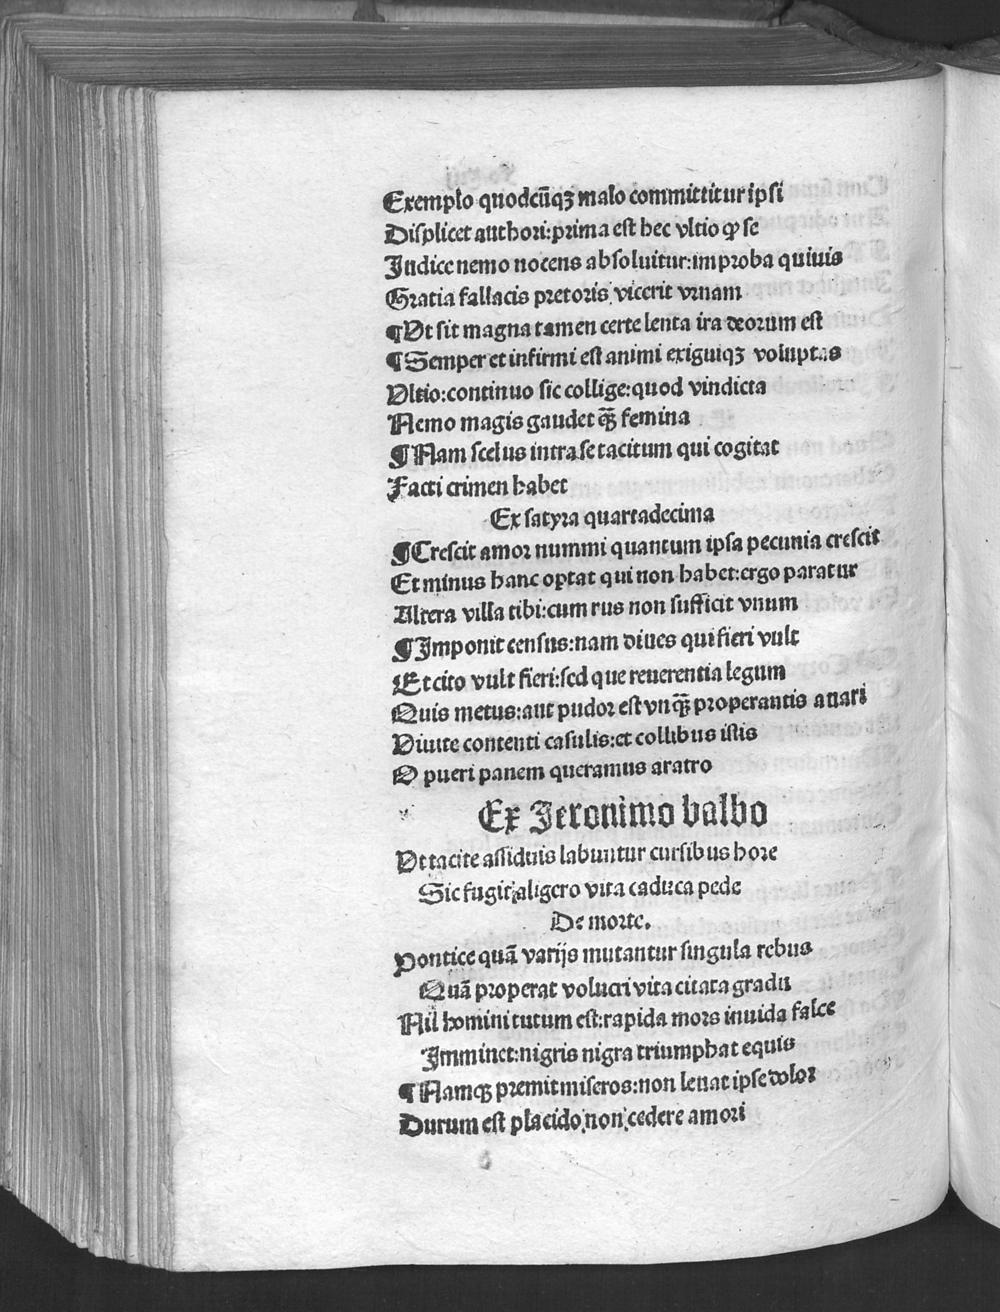 Exemplo quodcūqꝫ malo committitur ipsi
Displicet authori:prima est hec vltio ꝙ se
Judice nemo nocens absoluitur:improba quiuis
Gratia fallacis pretoris vicerit vrnam
¶Vt sit magna tamen certe lenta ira deorum est
¶Semper et infirmi est animi exiguiqꝫ voluptas
Vltio:continuo sic collige:quod vindicta
Nemo magis gaudet q̄ꝫ femina
¶Nam scelus intra se tacitum qui cogitat
Facti crimen habet
Ex satyra quartadecima
¶Crescit amor nummi quantum ipsa pecunia crescit
Et minus hanc optat qui non habet:ergo paratur
Altera villa tibi:cum rus non sufficit vnum
¶Imponit census:nam diues qui fieri vult
Et cito vult fieri:sed que reuerentia legum
Quis metus:aut pudor est vnq̄ꝫ properantis auari
Viuite contenti casulis:et collibus istis
O pueri panem queramus aratro
Ex Jeronimo balbo
Vt tacite assiduis labuntur cursibus hore
Sic fugit aligero vita caduca pede
De morte.
Pontice quā varijs mutantur singula rebus
Quā properat volucri vita citata gradu
Nil homini tutum est:rapida mors inuida falce
Imminet:nigris nigra triumphat equis
¶Namqꝫ premit miseros:non leuat ipse dolor
Durum est placido non cedere amori